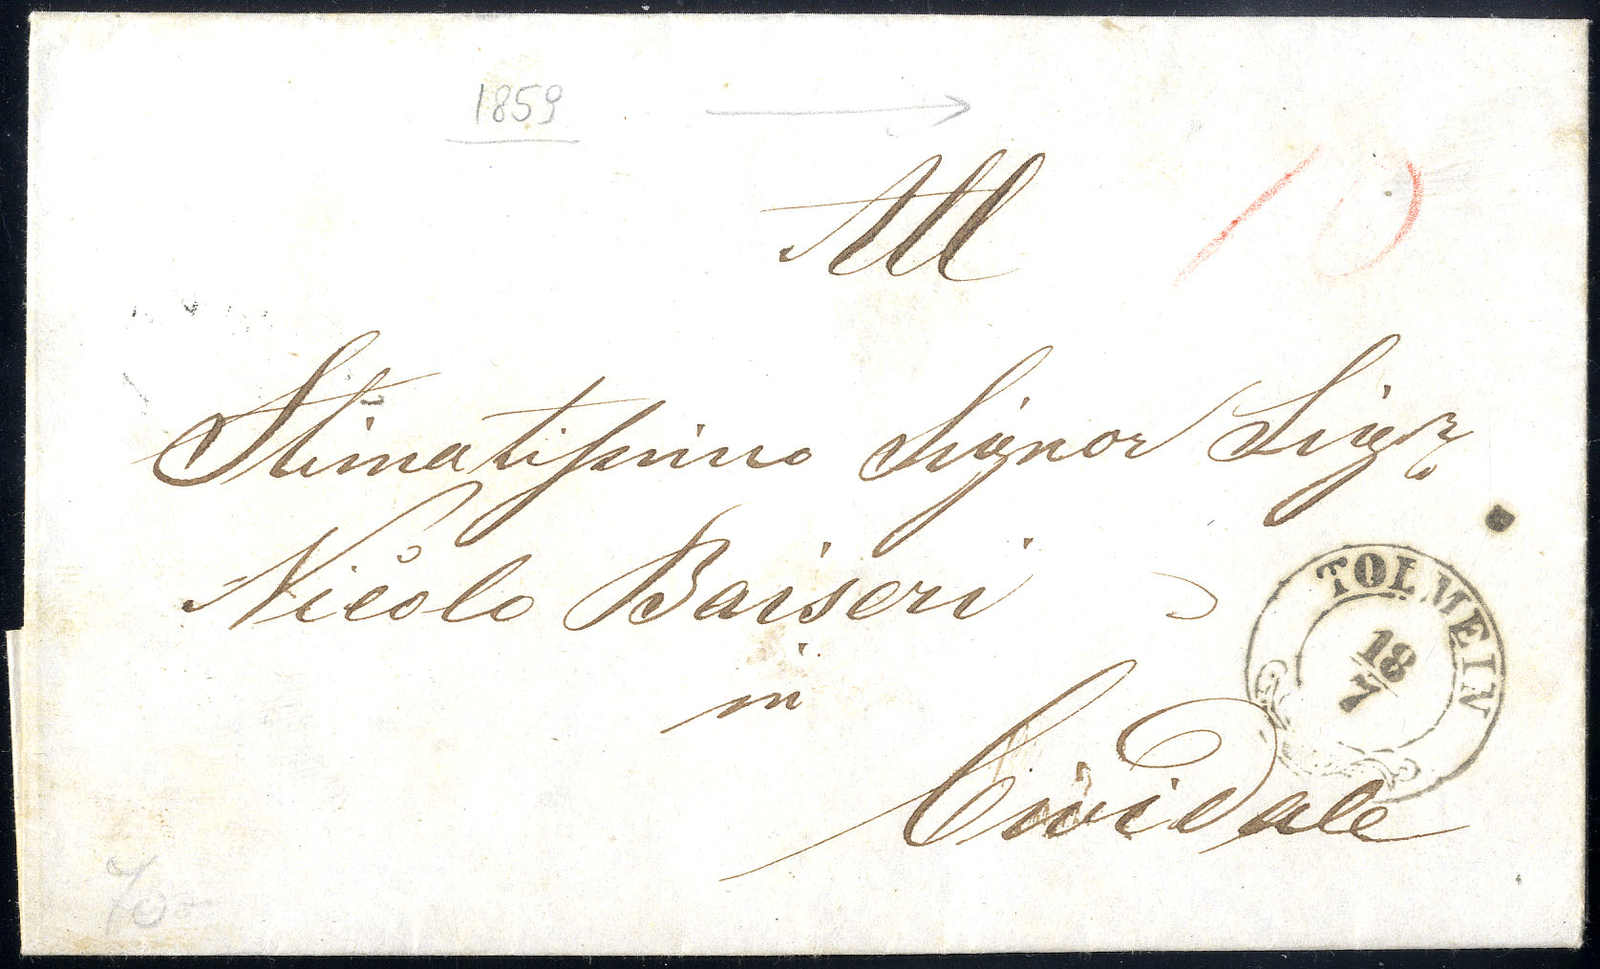 1859
10
All
Stimatissimo Signor Sigr
Nicolò Baiseri
in
Cividale
TOLMEIN
18
7